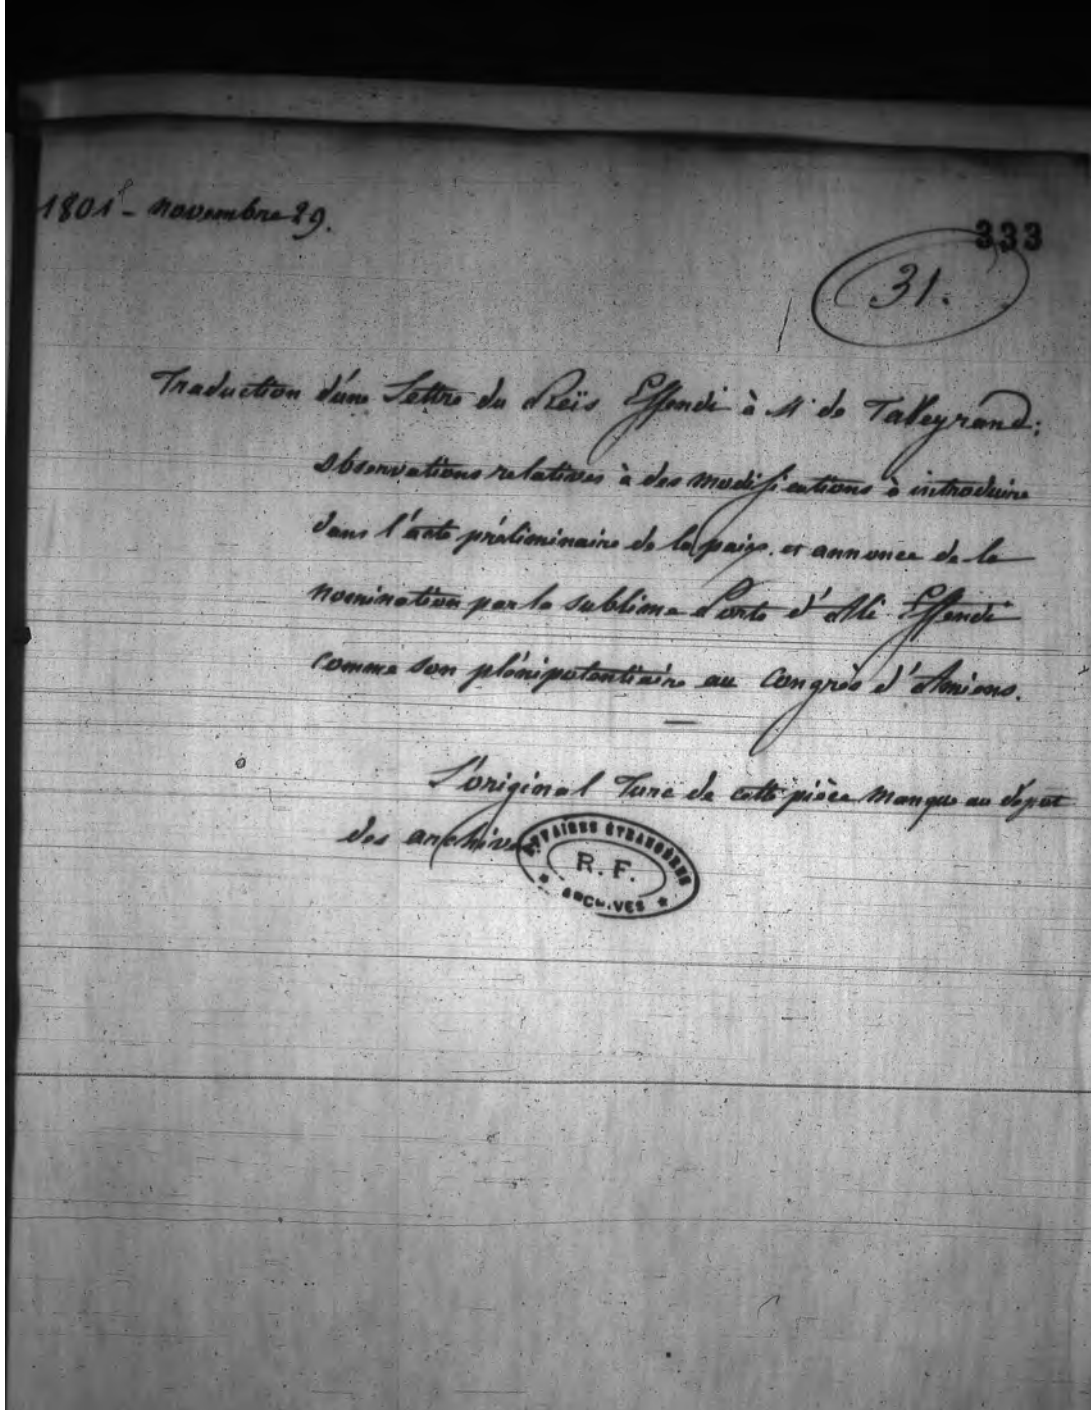 1801 - novembre 29.
333
31.
Traduction d'une Lettre du Reïs Effendi à Mr de Talleyrand;
observations relatives à des modifications à introduire
dans l'acte préliminaire de la paix. et annonce de la
nomination par la sublime Porte d'Ali Effendi
comme son plénipotentiaire au Congrès d'Amiens.
L'original Turc de cette pièce manque au dépot
des archives
AFFAIRES ÉTRANGÈRES
R. F.
* ARCHIVES *